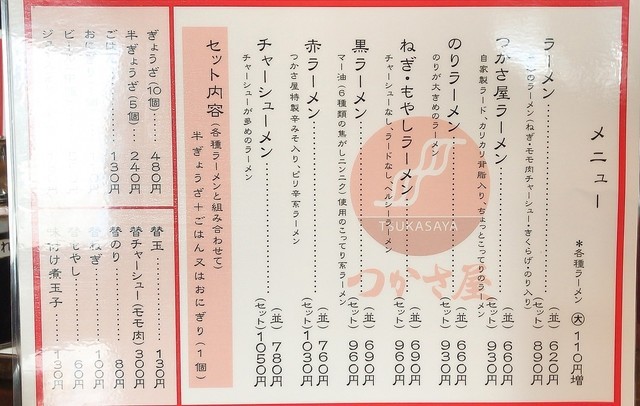 メニュー
*各種ラーメン 大 110円増
ラーメン……(並) 620円
のラーメン(ねぎ・モモ肉チャーシュー・きくらげ・のり入り) (セット) 890円
つかさ屋ラーメン……(並) 660円
自家製ラード、カリカリ背脂入り、ちょっとこってりのラーメン (セット) 930円
のりラーメン……(並) 660円
のりが大きめのラーメン (セット) 930円
ねぎ・もやしラーメン……(並) 690円
チャーシューなし、ラードなし、ヘルシーラーメン (セット) 960円
黒ラーメン……(並) 690円
マー油(6種類の焦がしニンニク)使用のこってり系ラーメン (セット) 960円
赤ラーメン……(並) 760円
つかさ屋特製辛みそ入り、ピリ辛系ラーメン (セット) 1030円
チャーシューメン……(並) 780円
チャーシューが多めのラーメン (セット) 1050円
セット内容(各種ラーメンと組み合わせて)
半ぎょうざ+ごはん又はおにぎり(1個)
TSUKASAYA
つかさ屋
ぎょうざ(10個)…480円
半ぎょうざ(5個)…240円
ごは……130円
おに
ビー
ジ
替玉……130円
替チャーシュー(モモ肉)300円
替のり……80円
替ねぎ……100円
替もやし……60円
味付け煮玉子……130円
れ